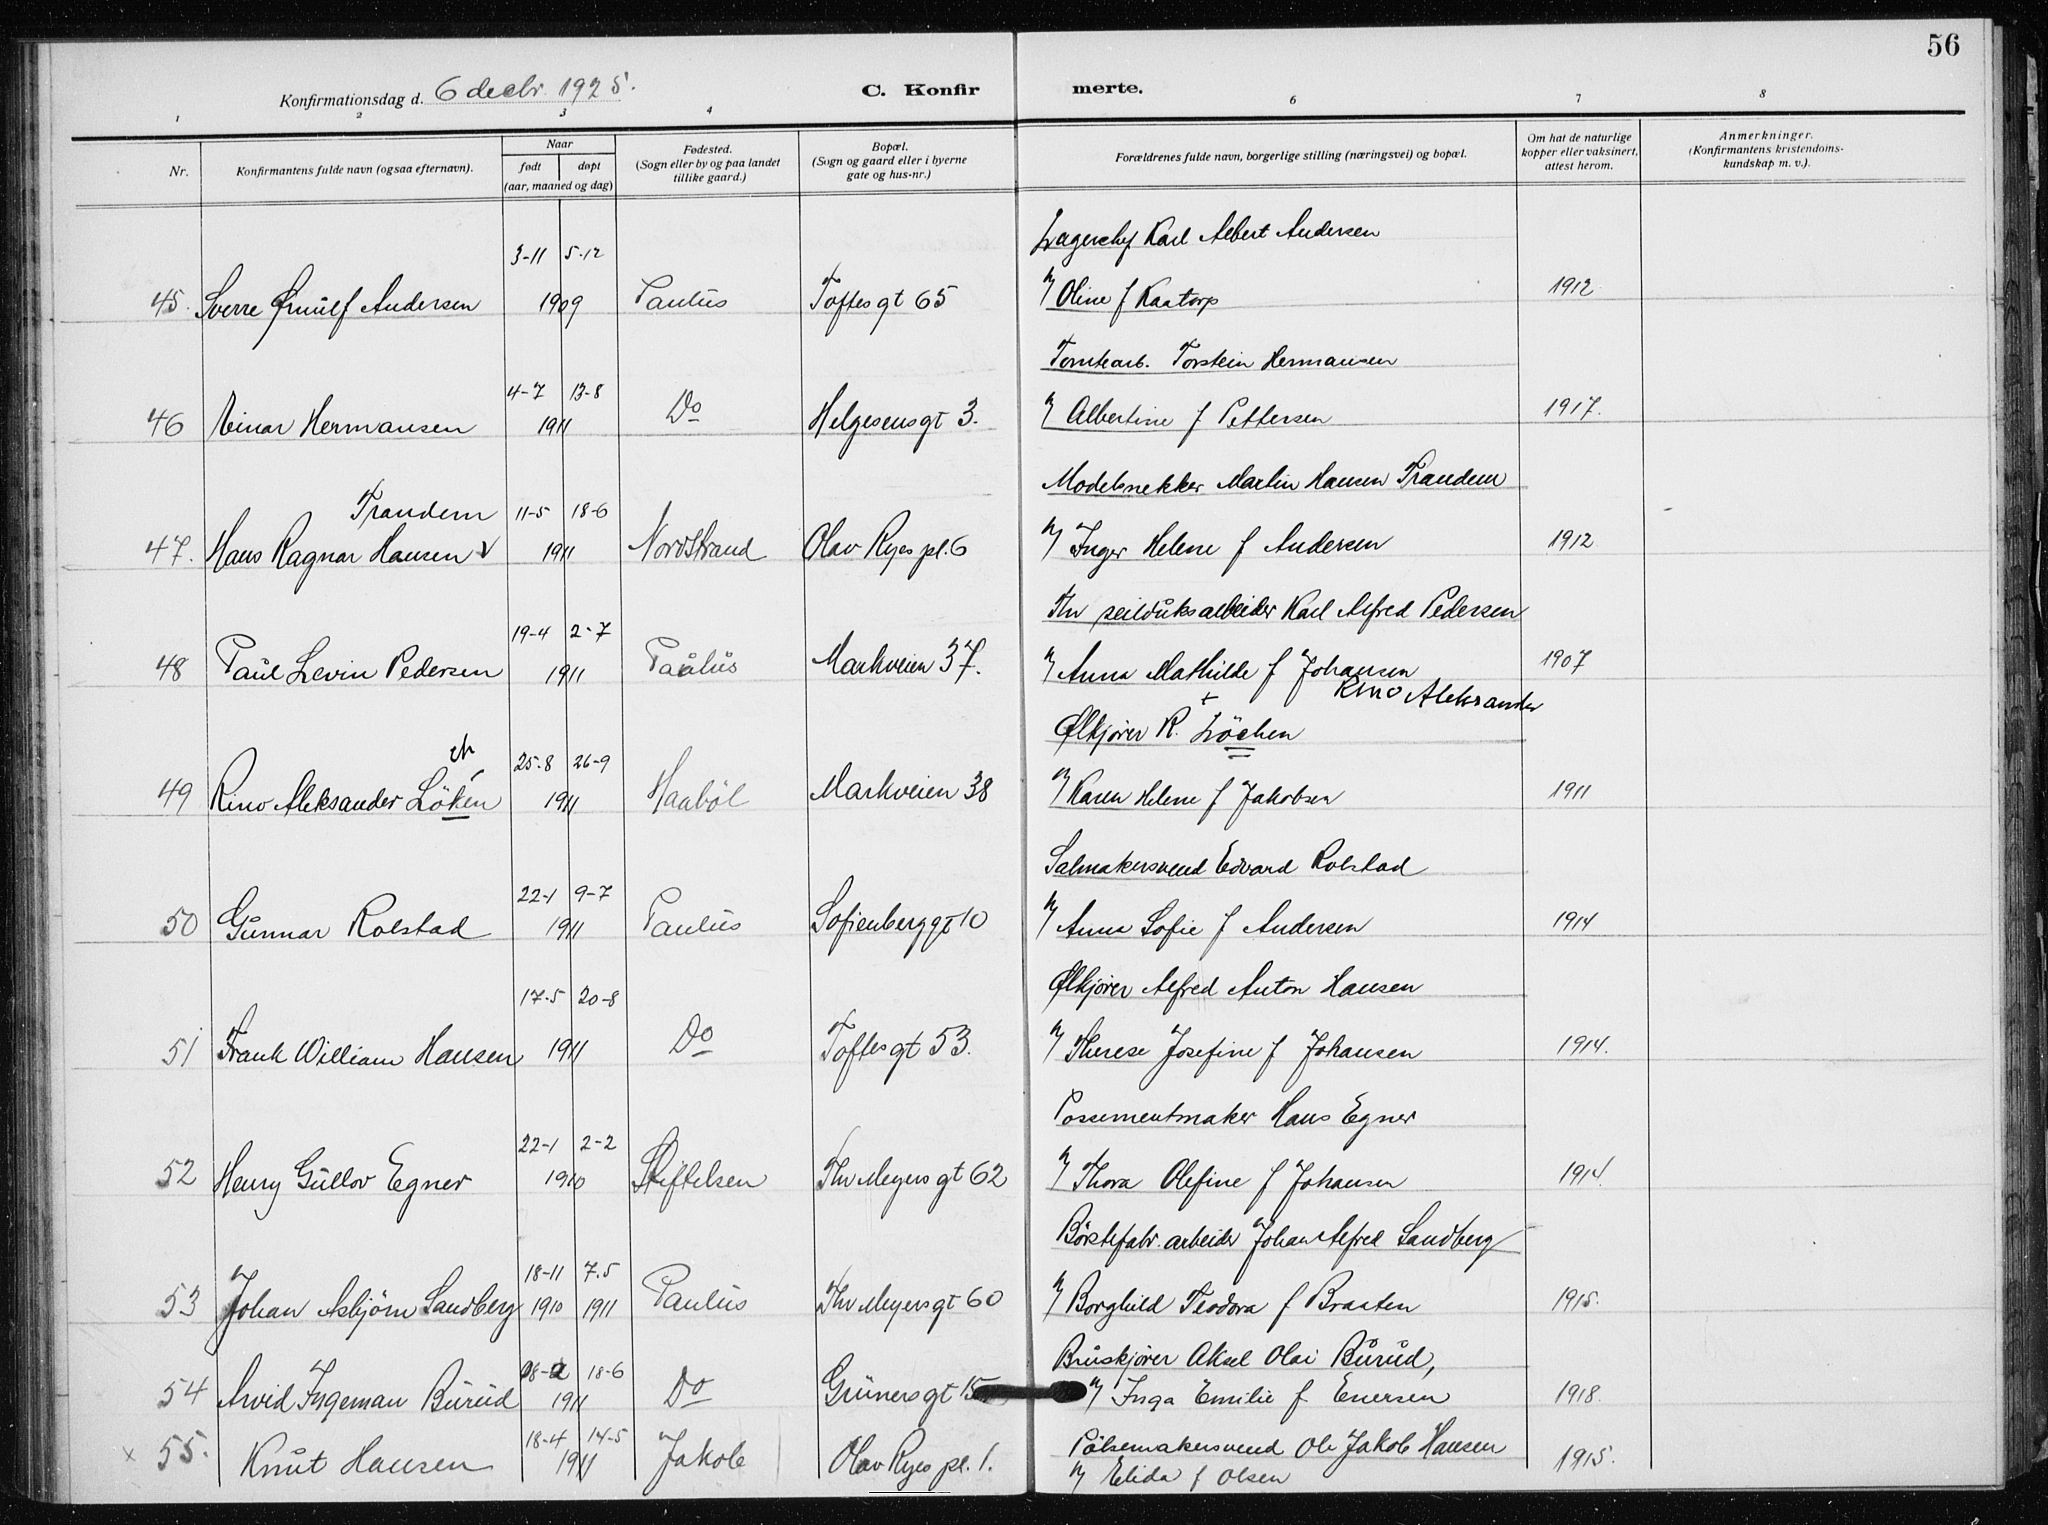 56
Konfirmationsdag d. 6 decbr. 1925.
C. Konfirmerte.
1 2 3 4 6 7 8
Nr.
Konfirmantens fulde navn (ogsaa efternavn).
Naar
født døpt
(aar, maaned og dag)
Fødested.
(Sogn eller by og paa landet
tillike gaard.)
Bopæl.
(Sogn og gaard eller i byerne
gate og hus-nr.)
Forældrenes fulde navn, borgerlige stilling (næringsvei) og bopæl.
Om hat de naturlige
kopper eller vaksinert,
attest herom.
Anmerkninger.
(Konfirmantens kristendoms-
kundskap m. v.).
Lagerchef Karl Albert Andersen
3-11 5-12
45. Sverre Ørnulf Andersen 1909 Paulus Toftes gt 65 Oline f Kaatorp 1912
Tomtearb. Torstein Hermansen
4-7 13-8
46 Einar Hermansen 1911 Do Helgesens gt 3. Albertine f Pettersen 1917.
Modelsnekker Martin Hansen Trandem
Trandem 11-5 18-6
47. Hans Ragnar Hansen 1911 Nordstrand Olav Ryes pl. 6 Inger Helene f Andersen 1912
Fhv seilduksarbeider Karl Alfred Pedersen
19-4 2-7
48 Paul Levin Pedersen 1911 Paulus Markveien 37. Anna Mathilde f Johansen 1907
+ Rino Aleksander
Ølkjører R. Löchen
ch
25-8 26-9
49 Rino Aleksander Löken 1911 Haaböl Markveien 38 Karen Helene f Jakobsen 1911
Salmakersvend Edvard Rolstad
22-1 9-7
50 Gunnar Rolstad 1911 Paulus Sofienberggt 10 Anna Sofie f Andersen 1914
Ølkjører Alfred Anton Hansen
17-5 20-8
51 Frank William Hansen 1911 Do Toftes gt 53. Therese Josefine f Johansen 1914.
Possementmaker Hans Egner
22-1 2-2
52 Henry Gullov Egner 1910 Stiftelsen Thv Meyers gt 62 Thora Olefine f Johansen 1914.
Børstefabr. arbeider Johan Alfred Sandberg
18-11 7.5
53 Johan Asbjørn Sandberg 1910 1911 Paulus Thv Meyers gt 60 Borghild Teodora f Braaten 1915.
Bruskjører Aksel Olai Burud,
18-6
54 Arvid Ingeman Burud 1911 Do Grüners gt 15 Inga Emilie f Enersen 1918.
18-4 14-5 Pölsemakersvend Ole Jakob Hansen
x 55. Knut Hansen 1911 Jakob Olav Ryes pl. 1. 1915.
Elida f Olsen